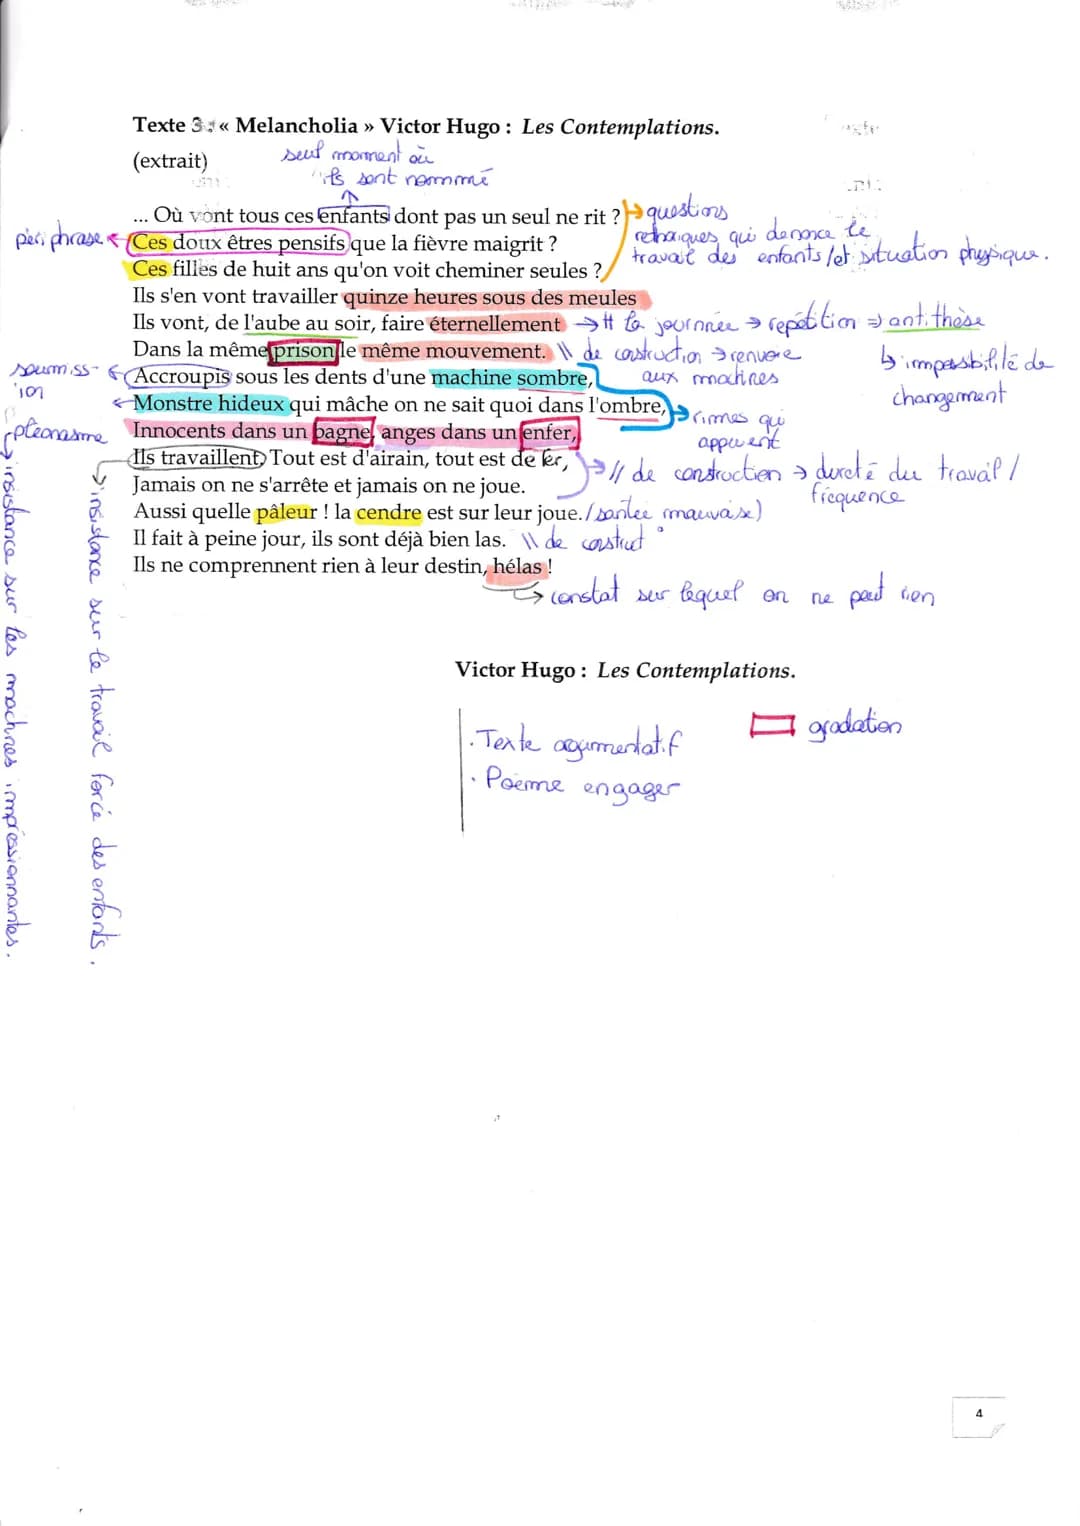 Texte 3 : « Melancholia » Victor Hugo : Les Contemplations.
(extrait)
seul moment où
ils sont nommé
... Où vont tous ces enfants dont pas un seul ne rit ?
Ces doux êtres pensifs que la fièvre maigrit ?
Ces filles de huit ans qu'on voit cheminer seules ?
Ils s'en vont travailler quinze heures sous des meules
Ils vont, de l'aube au soir, faire éternellement
Dans la même prison le même mouvement.
Accroupis sous les dents d'une machine sombre,
Monstre hideux qui mâche on ne sait quoi dans l'ombre,
Innocents dans un bagne, anges dans un enfer,
Ils travaillent. Tout est d'airain, tout est de fer,
Jamais on ne s'arrête et jamais on ne joue.
Aussi quelle pâleur ! la cendre est sur leur joue.
Il fait à peine jour, ils sont déjà bien las.
Ils ne comprennent rien à leur destin, hélas !
questions
rethoriques qui denonce le
travail des enfants / et situation physique.
périphrase
la journée → repétition ⇒ antithèse
↳ impossibilité de
changement
\\ de construction → renvoie
aux machines
soumiss-
ion
rimes qui
appuient
pléonasme
// de construction → dureté du travail /
fréquence
/ santee mauvaise)
\\ de construct°
→ constat sur lequel on ne peut rien
insistance sur le travail forcé des enfants.
insistance sur les machines impressionnantes.
Victor Hugo : Les Contemplations.
. Texte argumentatif
. Poème engager
gradation
4